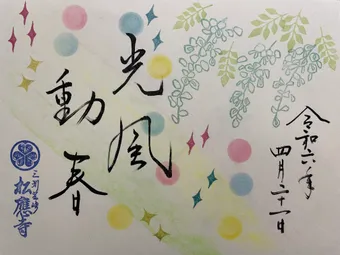 光風
動春
令和六年
四月二十一日
三河岡崎
松應寺